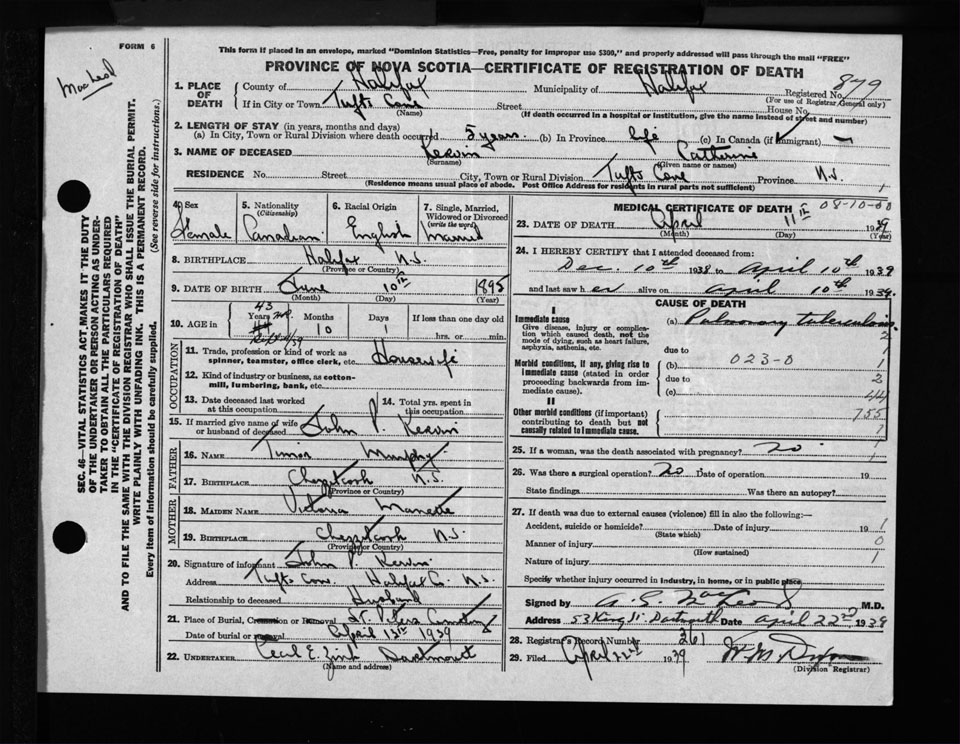 FORM 6
MacLeod
This form if placed in an envelope, marked "Dominion Statistics—Free, penalty for improper use $300," and properly addressed will pass through the mail "FREE"
PROVINCE OF NOVA SCOTIA—CERTIFICATE OF REGISTRATION OF DEATH
SEC. 46—VITAL STATISTICS ACT MAKES IT THE DUTY
OF THE UNDERTAKER OR PERSON ACTING AS UNDER-
TAKER TO OBTAIN ALL THE PARTICULARS REQUIRED
IN THE "CERTIFICATE OF REGISTRATION OF DEATH"
AND TO FILE THE SAME WITH THE DIVISION REGISTRAR WHO SHALL ISSUE THE BURIAL PERMIT.
WRITE PLAINLY WITH UNFADING INK. THIS IS A PERMANENT RECORD.
Every item of Information should be carefully supplied. (See reverse side for instructions.)
1. PLACE OF DEATH County of Halifax Municipality of Halifax Registered No. 879
(For use of Registrar General only)
If in City or Town Tufts Cove Street House No.
(Name) (If death occurred in a hospital or institution, give the name instead of street and number)
2. LENGTH OF STAY (in years, months and days)
(a) In City, Town or Rural Division where death occurred 5 years (b) In Province life (c) In Canada (if immigrant) —
3. NAME OF DECEASED Kervin Catherine
(Surname) (Given name or names)
RESIDENCE No. Street City, Town or Rural Division Tufts Cove Province N.S. 1
(Residence means usual place of abode. Post Office Address for residents in rural parts not sufficient)
4. Sex Female
5. Nationality (Citizenship) Canadian
6. Racial Origin English
7. Single, Married, Widowed or Divorced (write the word) Married
8. BIRTHPLACE Halifax N.S.
(Province or Country)
9. DATE OF BIRTH June 10th 1895
(Month) (Day) (Year)
10. AGE in 43 Years 10 Months 1 Days If less than one day old
hrs. or min.
OCCUPATION
11. Trade, profession or kind of work as spinner, teamster, office clerk, etc. Housewife
12. Kind of industry or business, as cotton-mill, lumbering, bank, etc.
13. Date deceased last worked at this occupation
14. Total yrs. spent in this occupation
15. If married give name of wife or husband of deceased John P. Kervin
FATHER
16. NAME Murphy
17. BIRTHPLACE Chezzetcook N.S.
(Province or Country)
MOTHER
18. MAIDEN NAME Victoria Manette
19. BIRTHPLACE Chezzetcook N.S.
(Province or Country)
20. Signature of informant John P. Kervin
Address Tufts Cove Halifax Co. N.S.
Relationship to deceased Husband
21. Place of Burial, Cremation or Removal St. Peters Cemetery
Date of burial or removal April 13th 1939
22. UNDERTAKER Cecil E. Zink Dartmouth
(Name and address)
MEDICAL CERTIFICATE OF DEATH 08-10-00
23. DATE OF DEATH April 11th 1939
(Month) (Day) (Year)
24. I HEREBY CERTIFY that I attended deceased from:
Dec. 10th 1938 to April 10th 1939
and last saw her alive on April 10th 1939.
CAUSE OF DEATH
I
Immediate cause (a) Pulmonary tuberculosis
Give disease, injury or complication which caused death, not the mode of dying, such as heart failure, asphyxia, asthenia, etc.
2
due to 1
Morbid conditions, if any, giving rise to immediate cause (stated in order proceeding backwards from immediate cause).
(b) 023-0 1
due to 2
(c) 44
II
Other morbid conditions (if important) contributing to death but not causally related to immediate cause.
755
1
25. If a woman, was the death associated with pregnancy? no 1
26. Was there a surgical operation? no Date of operation 19
State findings Was there an autopsy?
27. If death was due to external causes (violence) fill in also the following:—
Accident, suicide or homicide? Date of injury 19 1
(State which)
Manner of injury 0
(How sustained)
Nature of injury 1
Specify whether injury occurred in industry, in home, or in public place
Signed by M.D.
Address 53 King St. Dartmouth Date April 22nd 1939
28. Registrar's Record Number 361
29. Filed April 22nd 1939
(Division Registrar)